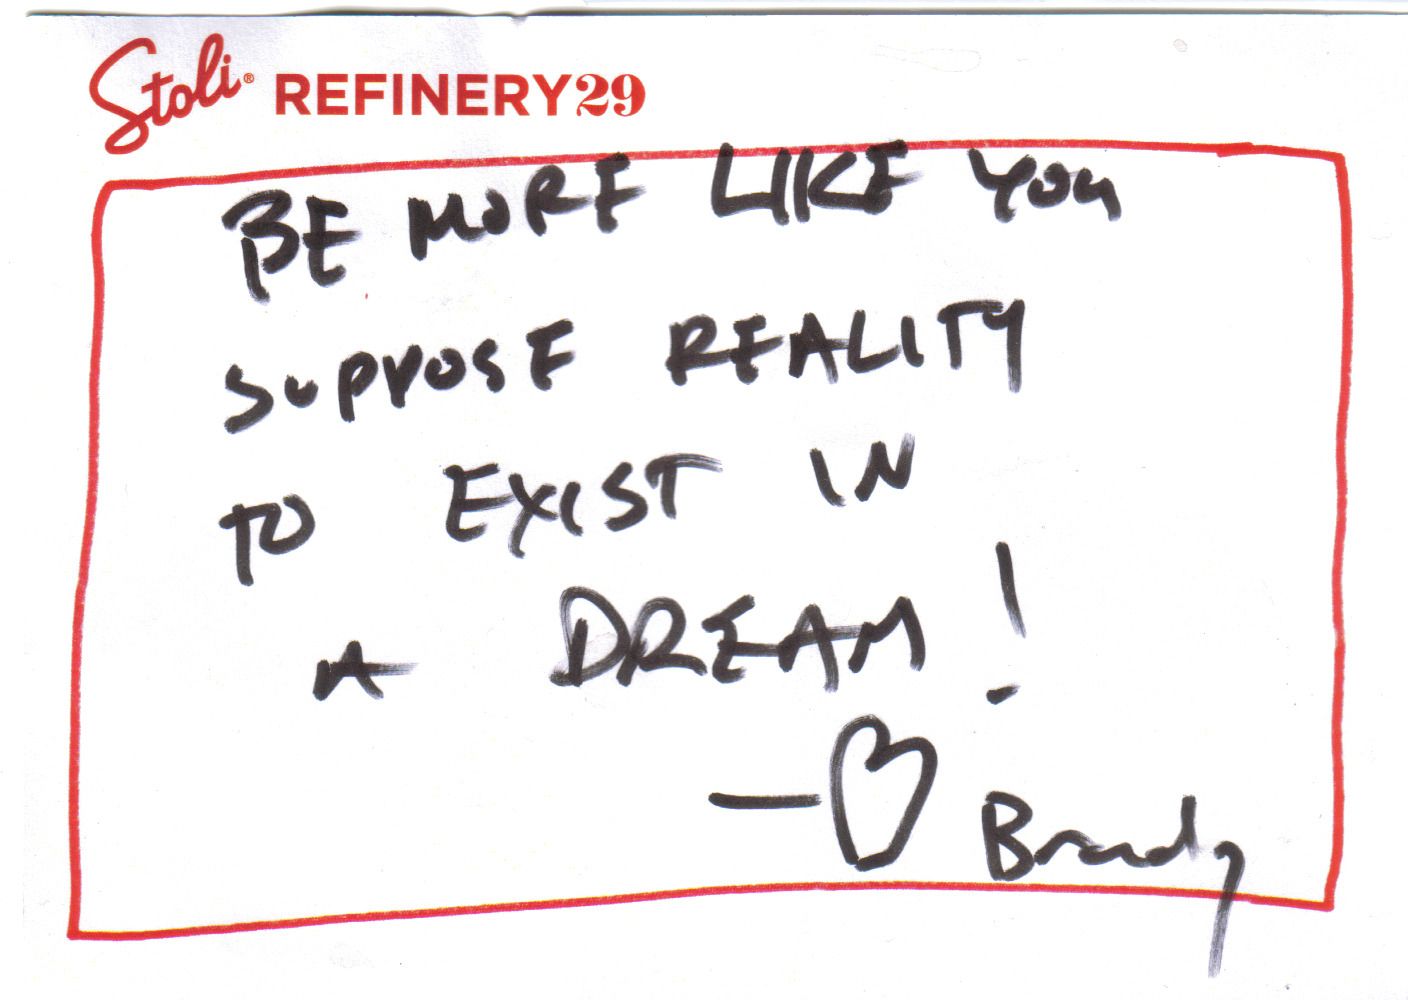 Stoli® REFINERY29
BE MORE LIKE YOU
SUPPOSE REALITY
TO EXIST IN
A DREAM!
—♡ Brady